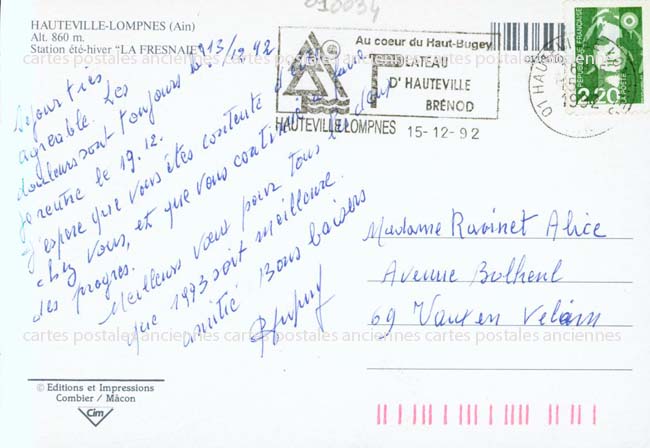 HAUTEVILLE-LOMPNES (Ain)
Alt. 860 m.
Station été-hiver "LA FRESNAIE"
le 13/12.92
Séjour très
agréable. Les
douleurs sont toujours là.
Je rentre le 19.12.
J'espère que vous êtes contente d'être
chez vous, et que vous continuez à faire
des progrès.
Meilleurs vœux pour tous
que 1993 soit meilleure.
amitié Bons baisers
010034
Au coeur du Haut-Bugey
PLATEAU
D'HAUTEVILLE
BRÉNOD
HAUTEVILLE-LOMPNES 15-12-92
RÉPUBLIQUE FRANÇAISE
2,20
LA POSTE
01 HAUTEVILLE
1992
Madame Ravinet Alice
Avenue Bolheul
69 Vaux en Velain
cartes postales anciennes cartes postales anciennes cartes postales anciennes
cartes postales anciennes cartes postales anciennes cartes postales anciennes
© Editions et Impressions
Combier / Mâcon
Cim